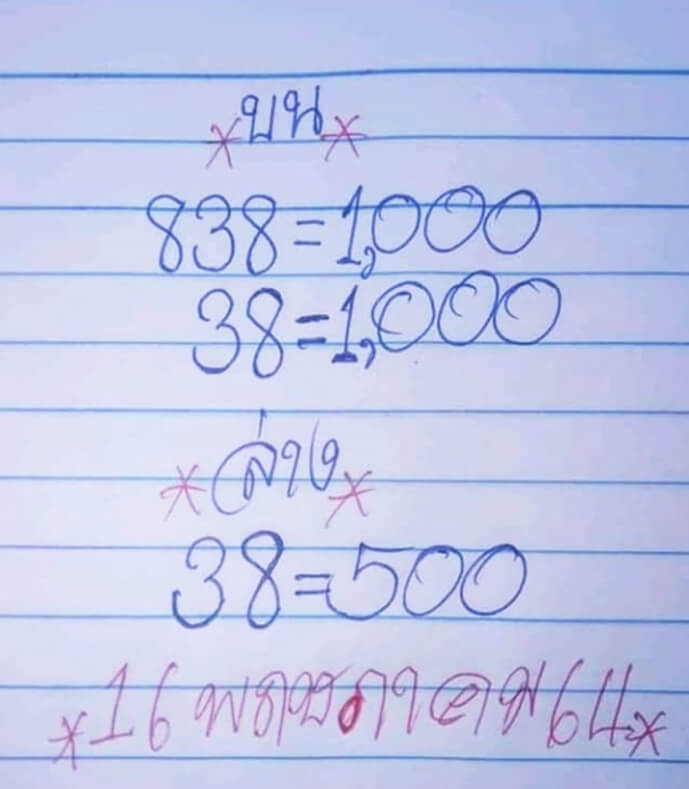 *บน*
838=1,000
38=1,000
*ล่าง*
38=500
*16 พฤษภาคม 64*